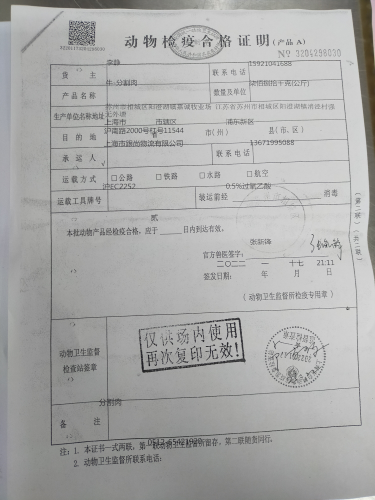 动物检疫合格证明(产品 A)
№ 3204296030
货 主
李静
联系电话
15921041688
产品名称
牛-分割肉
数量及单位
柒佰捌拾千克(公斤)
生产单位名称地址
目的地
上海市 市辖区 浦东新区
沪南路2000号红号11544 市(州) 县(市、区)
承运人
联系电话
13671995088
运载方式
□公路 □铁路 □水路 □航空
运载工具牌号
沪EC2252
装运前经 0.5%过氧乙酸 消毒
本批动物产品经检疫合格,应于 贰 日内到达有效。
官方兽医签字:
张新海
二〇二二 十一 十七 21:11
签发日期: 年 月 日
(动物卫生监督所检疫专用章)
动物卫生监督
检查站签章
仅供场内使用
再次复印无效!
备 注
分割肉
注:1. 本证书一式两联,第一联动物卫生监督所留存,第二联随货同行。
2. 动物卫生监督所联系电话:
0512-65421920
(第二联)